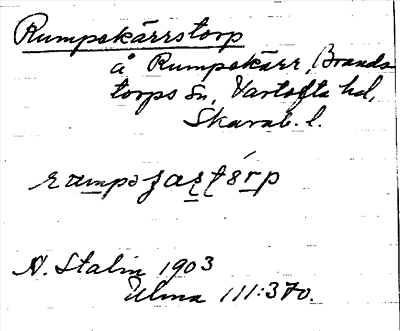 Rumpskärrstorp
å Rumpskärr, Brands-
torps sn, Vartofta hd,
Skarab. l.
N. Stalin 1903
Ulma 111:370.